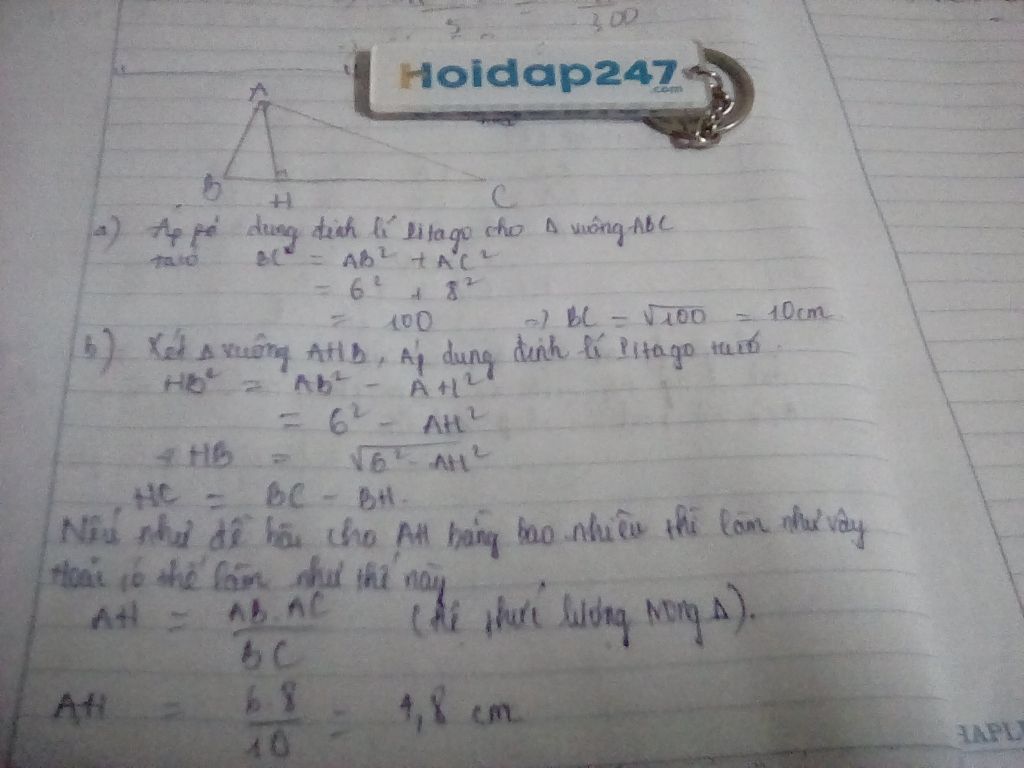 5 = 300
Hoidap247
.com
A
B H C
a) Áp dụng định lí Pitago cho Δ vuông ABC
ta có BC² = AB² + AC²
= 6² + 8²
= 100 => BC = √100 = 10cm
b) Xét Δ vuông AHB, Áp dụng định lí Pitago ta có
HB² = AB² - AH²
= 6² - AH²
HB = √6² - AH²
HC = BC - BH.
Nếu như đề bài cho AH bằng bao nhiêu thì làm như vậy
Hoặc có thể làm như thế này
AH = AB.AC / BC (Hệ thức lượng trong Δ).
AH = 6.8 / 10 = 4,8 cm